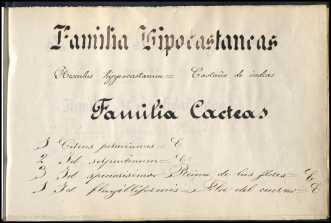 Familia Hipocastaneas
Aesculus hyppocastanum = Castaño de indias
Familia Cacteas
1 Cereus peruvianus = C
2 Id serpentinum = C
3 Id speciosisimus = Reina de las flores = C
Id flagelliformis = Flor del cuerno = C